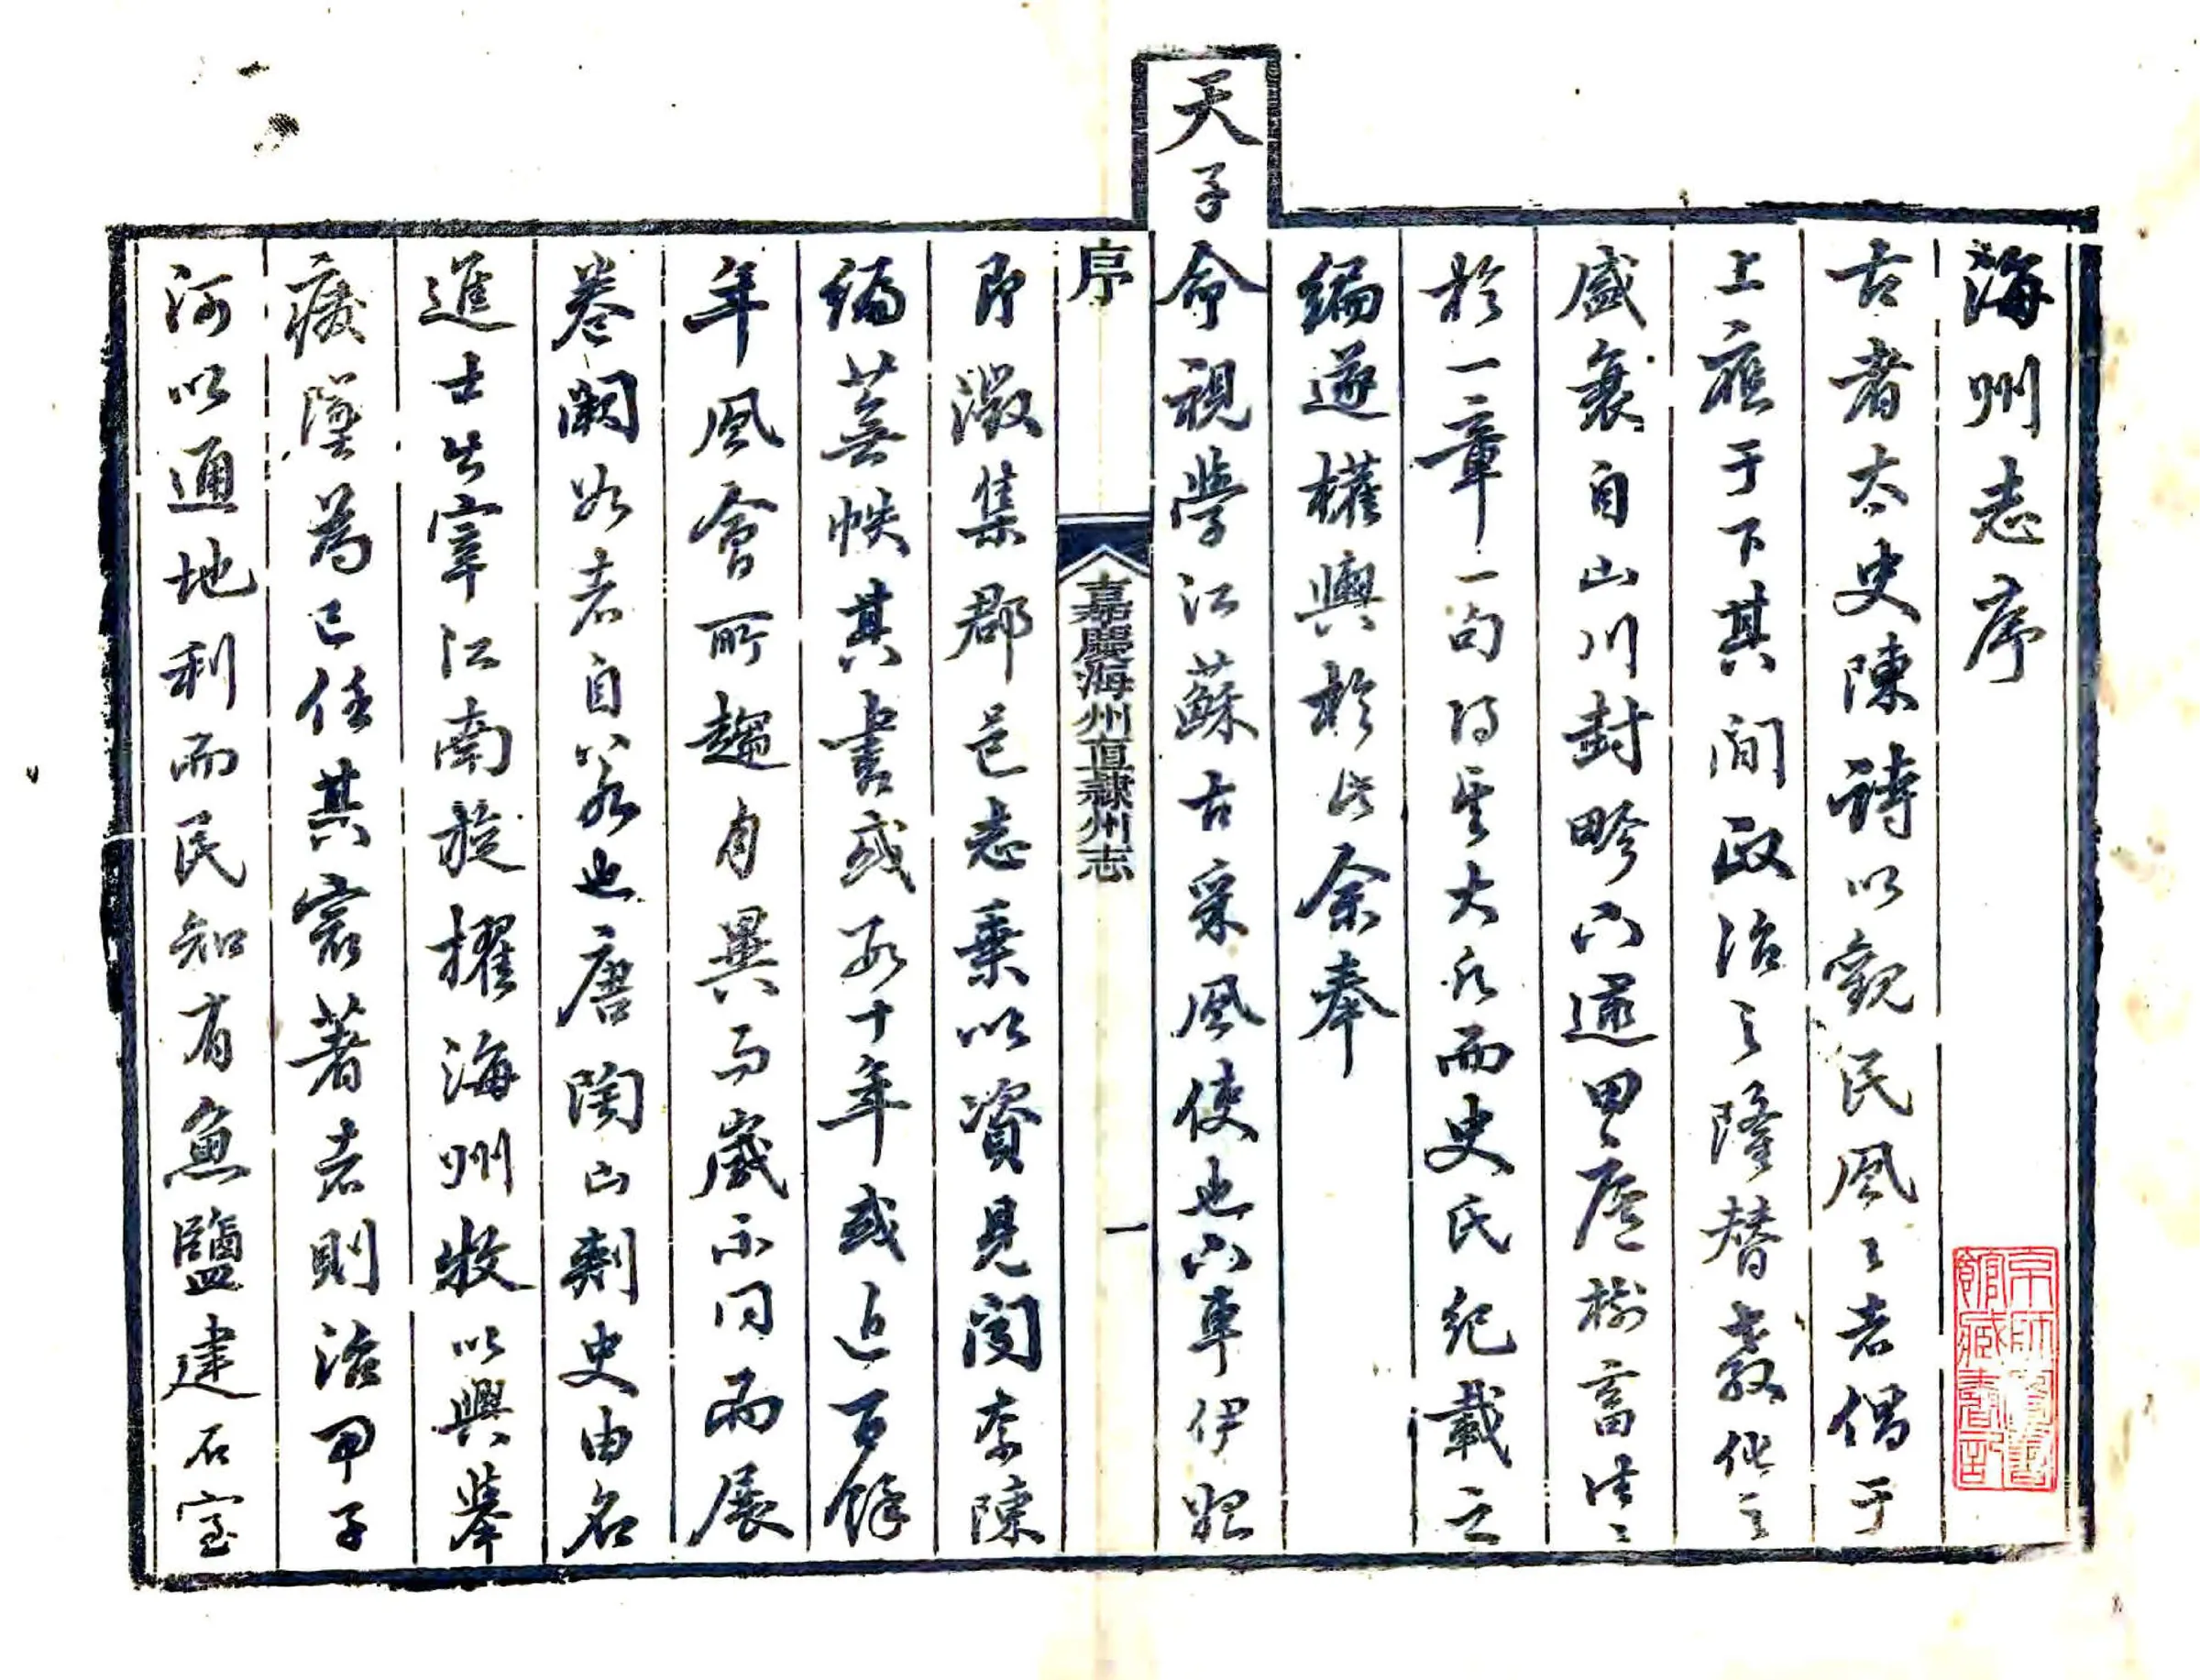 海州志序
古者太史陳詩以觀民風之者倡于
上應于下其間政治之隆替教化之
盛衰自山川封畛以逮田廬樹畜往々
於一章一句得其大凡而史氏紀載之
編遂權輿於此余奉
天子命視學江蘇古采風使也下車伊始
序
嘉慶海州直隸州志
一
即徵集郡邑志乘以資見聞奈陳
編蕪帙其書或數十年或近百餘
年風會所趨有異而歲不同而展
卷闕如者自若也唐陶山刺史由名
進士出宰江南旋擢海州牧以興舉
廢墜為己任其最著者則治甲子
河以通地利而民知有魚鹽建石室
京師圖書
館藏書記